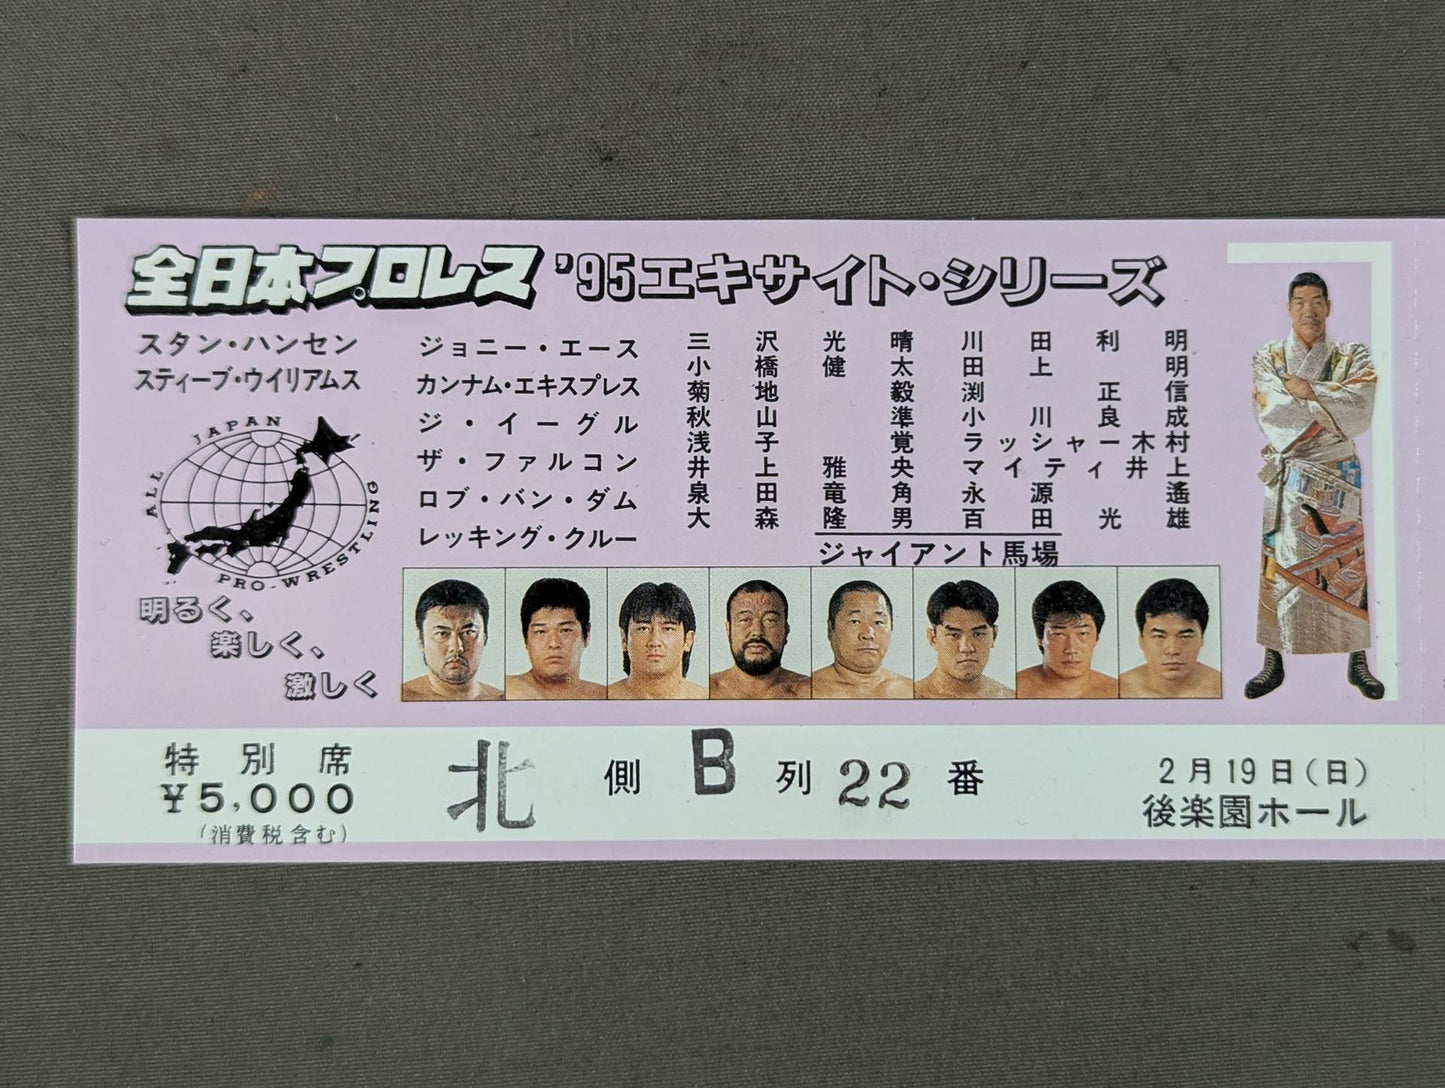 全日本プロレス '95エキサイト・シリーズ
スタン・ハンセン
スティーブ・ウイリアムス
ALL JAPAN PRO-WRESTLING
明るく、
楽しく、
激しく
ジョニー・エース
カンナム・エキスプレス
ジ・イーグル
ザ・ファルコン
ロブ・バン・ダム
レッキング・クルー
三沢光晴 川田利明
小橋健太 田上明
菊地毅 渕正信
秋山準 小川良成
浅子覚 ラッシャー木村
井上雅央 マイティ井上
泉田竜角 永源遙
大森隆男 百田光雄
ジャイアント馬場
特別席
¥5,000
(消費税含む)
北側B列22番
2月19日(日)
後楽園ホール